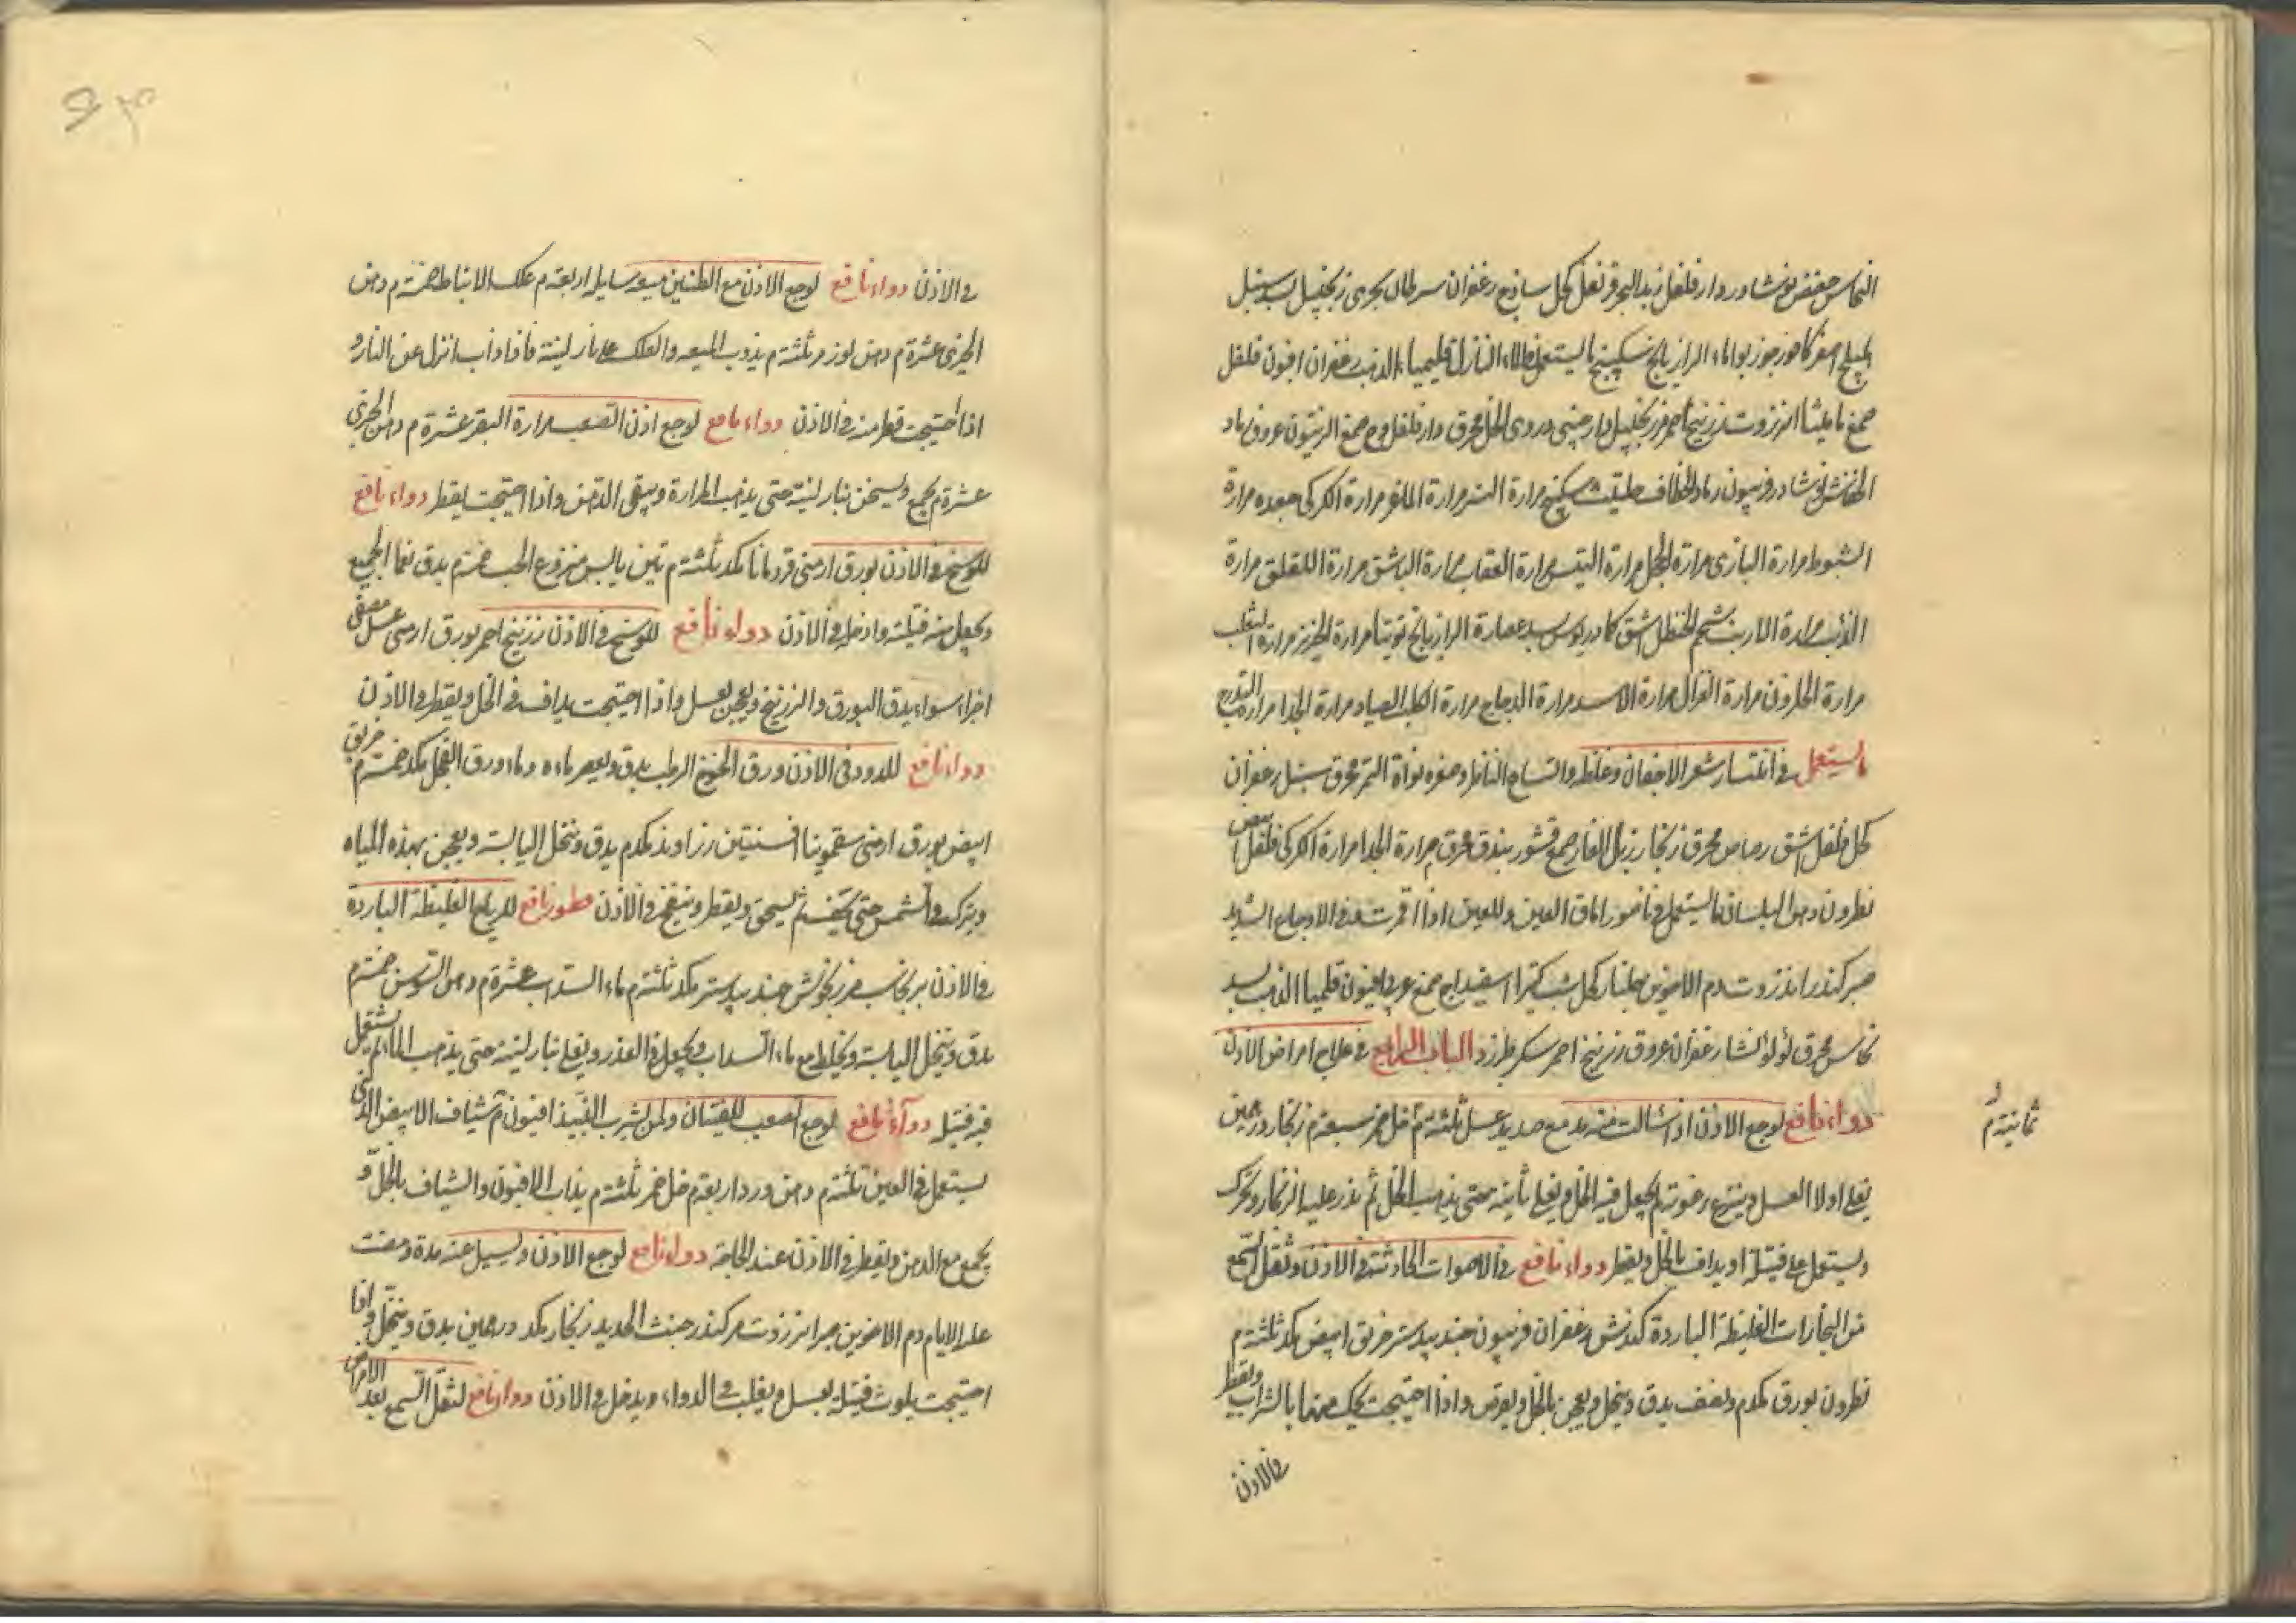 النحاس عفص نوشادر دار فلفل زبد البحر قرنفل كحل ساذج زعفران سرطان بحرى زنجبيل بسد سنبل
هليلج اصفر كافور جوزبوا ماء الرازيانج سكبينج ما يستعمل طلاء النازل قليميا الذهب زعفران افيون فلفل
صمغ ماميثا انزروت زرنيخ احمر زنجبيل دارصينى دردى الخل محرق دار فلفل وج صمغ الزيتون عروق رماد
الخفاش نوشادر فربيون رماد الخطاف حلتيت سكبينج مرارة النسر مرارة الماعز مرارة الكركى جعده مرارة
الشبوط مرارة البازى مرارة الحجل مرارة التيس مرارة العقاب مرارة الباشق مرارة اللقلق مرارة
الذئب مرارة الارنب شحم الحنظل اشق كمادريوس بسد عصارة الرازيانج توتيا مرارة الخنزير مرارة الثعلب
مرارة الحلزون مرارة الغزال مرارة الاسد مرارة الدجاج مرارة الكلب الصياد مرارة الجدا مرارة التدرج
ما يستعمل فى انتشار شعر الاجفان وغلظه واتساع الناظر وصفره نواة التمر محرق سنبل زعفران
كحل فلفل اشق رصاص محرق زنجار زبل الفار صمغ قشور بندق محرق مرارة الجدا مرارة الكركى فلفل ابيض
نطرون دهن البلسان ما يستعمل فى ناصور اماق العين وللعين اذا اقرحت فى الاوجاع الشديد
صبر كندر انزروت دم الاخوين جلنار كحل شب كثيرا اسفيداج صمغ عربى افيون قليميا الذهب بسد
نحاس محرق لؤلؤ نشا زعفران عروق زرنيخ احمر سكر طبرزد الباب الرابع فى علاج امراض الاذن
دواء نافع لوجع الاذن اذا سالت منه مده مع صديد عسل ثلثة م خل خمر سبعة م زنجار درهمين
ثمانية م
يغلى اولا العسل وينزع رغوته ثم يجعل فيه الخل ويغلى ثانية حتى يذهب الخل ثم يذر عليه الزنجار ويحرك
ويستعمل على فتيلة او يداف بالخل ويقطر دواء نافع فى الاصوات الحادثة فى الاذن وثقل السمع
من البخارات الغليظة الباردة كندش زعفران فربيون جندبيدستر خربق ابيض مكد ثلثة م
نطرون بورق مكدم ونصف يدق وينخل ويعجن بالخل ويقرص واذا احتيجت يحك منها بالشراب ويقطر
فى الاذن
فى الاذن دواء نافع لوجع الاذن مع الطنين ميعه سايله اربعة م علك الانباط خمسة م دهن
الخيرى عشرة م دهن لوز مر ثلثة م يذوب الميعه والعلك على نار لينة فاذا ذاب انزل عن النار و
اذا احتيجت قطر منه فى الاذن دواء نافع لوجع اذن الصعب مرارة البقر عشرة م دهن الخيرى
عشرة م يجمع ويسخن بنار لينة حتى يذهب المرارة ويبقى الدهن واذا احتيجت يقطر دواء نافع
للوسخ فى الاذن بورق ارمنى قردمانا مكد ثلثة م تين يابس منزوع الحب خمسة م يدق نعما الجميع
ويجعل منه فتيلة وادخل فى الاذن دواء نافع للوسخ فى الاذن زرنيخ احمر بورق ارمنى عسل مصفى
اجزاء سواء يدق البورق والزرنيخ ويعجن بعسل واذا احتيجت يداف فى الخل ويقطر فى الاذن
دواء نافع للدود فى الاذن ورق الخوخ الرطب يدق ويعصر ماءه وماء ورق الفجل مكد خمسة م خربق
ابيض بورق ارمنى سقمونيا افسنتين زراوند مكدم يدق وينخل اليابسة ويعجن بهذه المياه
ويترك فى الشمس حتى يجف ثم يسحق ويقطر وينفخ فى الاذن قطور نافع للرياح الغليظة الباردة
فى الاذن برنجاسب مرزنجوش جندبيدستر مكد ثلثة م ماء السداب عشرة م دهن السوسن خمسة م
يدق وينخل اليابسة ويخلط مع ماء السداب ويجعل فى القدر ويغلى بنار لينة حتى يذهب الماء ثم يشعل
فيه فتيل دواء نافع لوجع الصعب للفتيان ولمن يشرب النبيذ افيون م شياف الابيض الذى
يستعمل فى العين ثلثة م دهن ورد اربعة م خل خمر ثلثة م يذاب الافيون والشياف بالخل و
يجمع مع الدهن ويقطر فى الاذن عند الحاجة دواء نافع لوجع الاذن ويسيل عنه مدة ومضت
عليه الايام دم الاخوين صبر انزروت مر كندر خبث الحديد زنجار مكد درهمين يدق وينخل واذا
احتيجت يلوث فتيلة بعسل ويقلب فى الدواء ويدخل فى الاذن دواء نافع لثقل السمع بعد الامراض